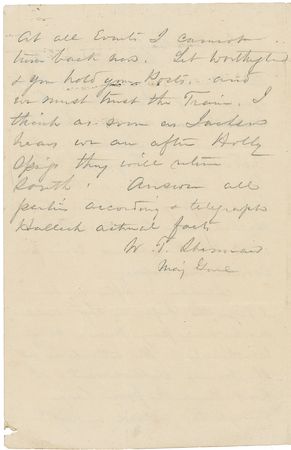 At all Events I cannot
turn back now. Let Worthington
& you hold your Posts. and
we must trust the Train. I
think as soon as Jackson
hears we are after Holly
Spgs they will return
South. Answer all
parties according & telegraph
Halleck actual facts
W. T. Sherman
Maj Genl